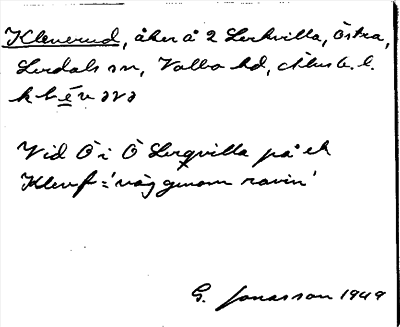 Kleverud, åker å 2 Lerkvilla, Östra,
Lerdals sn, Valbo hd, Älvsb. l.
Vid Ö i Ö Lerqvilla på ek
Klevf = 'väg genom ravin'
G. Jonasson 1949